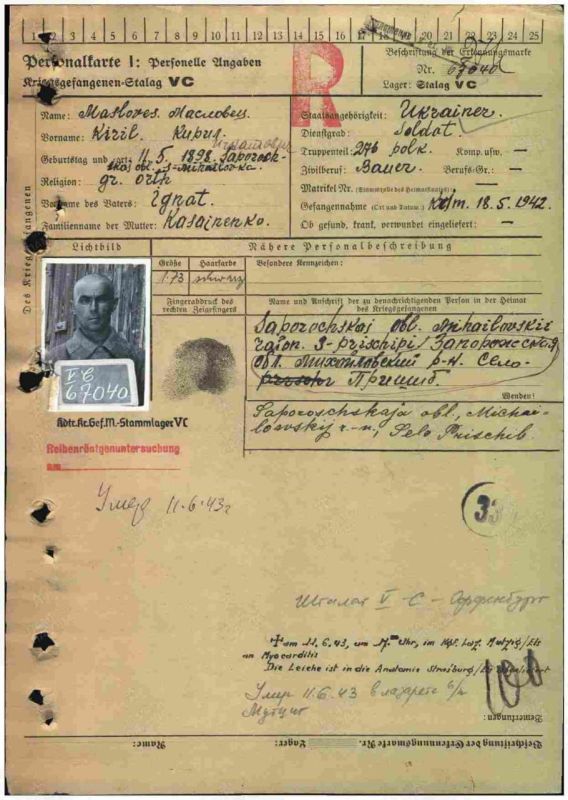 1 2 3 4 5 6 7 8 9 10 11 12 13 14 15 16 17 18 19 20 21 22 23 24 25
Personalkarte I: Personelle Angaben
Kriegsgefangenen-Stalag VC
R
Beschriftung der Erkennungsmarke
Nr. 67040
Lager: Stalag VC
Des Kriegsgefangenen
Name: Masloves. Масловец.
Vorname: Kiril. Кирил.
Игнатович
Geburtstag und -ort: 11.5.1898. Saporosch-
skaj obl. S-Mihailovka.
Religion: gr. orth
Vorname des Vaters: Ignat.
Familienname der Mutter: Kasainenko.
Staatsangehörigkeit: Ukrainer.
Dienstgrad: Soldat.
Truppenteil: 276 polk. Komp. usw. —
Zivilberuf: Bauer. Berufs-Gr.: —
Matrikel Nr. (Stammrolle des Heimatstaates) —
Gefangennahme (Ort und Datum) 18.5.1942.
Ob gesund, krank, verwundet eingeliefert: —
Lichtbild
Nähere Personalbeschreibung
Größe Haarfarbe Besondere Kennzeichen:
1.73 schwarz
Fingerabdruck des
rechten Zeigefingers
Name und Anschrift der zu benachrichtigenden Person in der Heimat
des Kriegsgefangenen
Saporochskaj obl. Mihailovskij
raion. S-prischipi/ Запорожская
обл. Михайловский р-н. Село
Пришиб.
Wenden!
Saporoschskaja obl., Michai-
lowskij r-n, Selo Prischib.
VC
67040
Kdtr. Kr. Gef. M.-Stammlager VC
Reihenröntgenuntersuchung
am
Умер 11.6.43г
33
Шталаг V-C - Оффенбург
am 11.6.43, um 17.00 Uhr, im Kgf. Laz. Mutzig/Els
an Myocarditis
Die Leiche ist in die Anatomie Strasburg/Els
Умер 11.6.43 в лазарете в/п
Мутциг
100
Bemerkungen:
Beschriftung der Erkennungsmarke Nr. Lager: Name: